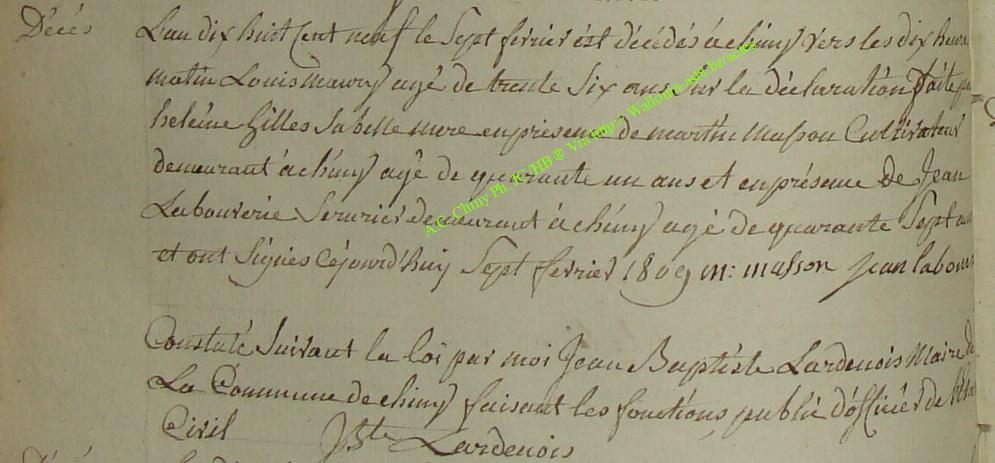 Décés
L'an dix huit Cent neuf le Sept fevrier est décédés à chiny vers les dix heure
matin Louis mawry agé de trente Six ans sur la déclaration faite
heleine Gilles sa belle mere en présence de martin masson Cultivateur
demeurant à chiny agé de quarante un ans et en présence de Jean
Labouverie Serurier demeurant à chiny agé de quarante Sept
et ont Signés Cejourd'huy Sept fevrier 1809 m: masson jean labouv
Constaté Suivant la loi par moi Jean Baptiste Lardenois Maire de
La Commune de chiny faisant les fonctions public d'officier de
Civil JBte Lardenois
A.G. Chiny Ph. JC/HB ® Via http:// Wallonia-asbl.be/actes